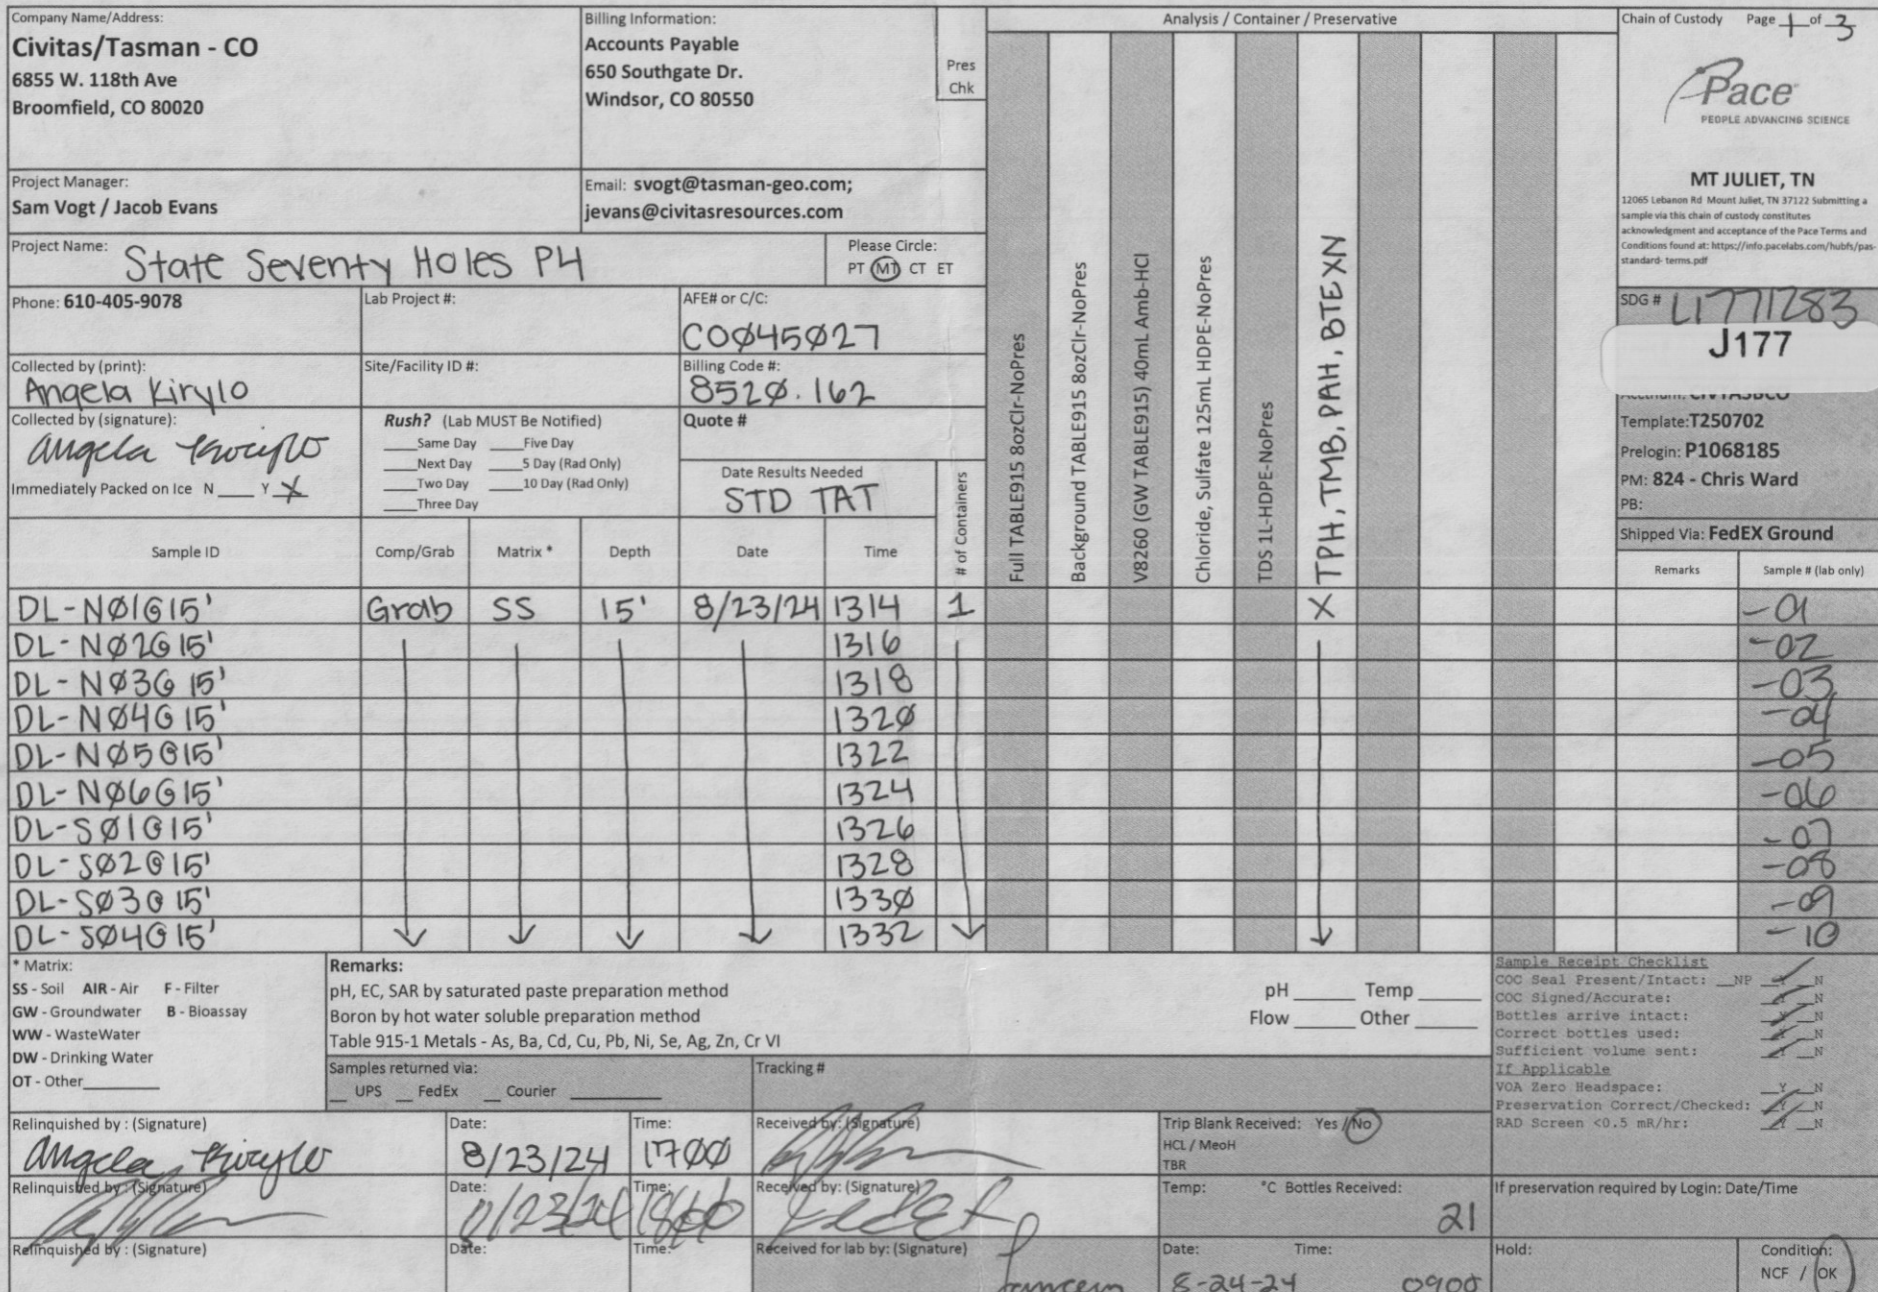 Company Name/Address:
Civitas/Tasman - CO
6855 W. 118th Ave
Broomfield, CO 80020
Billing Information:
Accounts Payable
650 Southgate Dr.
Windsor, CO 80550
Pres
Chk
Analysis / Container / Preservative
Chain of Custody Page 1 of 3
Pace
PEOPLE ADVANCING SCIENCE
MT JULIET, TN
12065 Lebanon Rd Mount Juliet, TN 37122 Submitting a
sample via this chain of custody constitutes
acknowledgment and acceptance of the Pace Terms and
Conditions found at: https://info.pacelabs.com/hubfs/pas-
standard- terms.pdf
Project Manager:
Sam Vogt / Jacob Evans
Email: svogt@tasman-geo.com;
jevans@civitasresources.com
Project Name: State Seventy Holes P4
Please Circle:
PT MT CT ET
Phone: 610-405-9078
Lab Project #:
AFE# or C/C:
COØ45Ø27
SDG # L1771283
J177
Collected by (print):
Angela Kirylo
Site/Facility ID #:
Billing Code #:
852Ø.162
Collected by (signature):
Angela Kirylo
Immediately Packed on Ice N ___ Y X
Rush? (Lab MUST Be Notified)
___Same Day ___Five Day
___Next Day ___5 Day (Rad Only)
___Two Day ___10 Day (Rad Only)
___Three Day
Quote #
Date Results Needed
STD TAT
# of Containers
Full TABLE915 8ozClr-NoPres
Background TABLE915 8ozClr-NoPres
V8260 (GW TABLE915) 40mL Amb-HCl
Chloride, Sulfate 125mL HDPE-NoPres
TDS 1L-HDPE-NoPres
TPH, TMB, PAH, BTEXN
Template:T250702
Prelogin: P1068185
PM: 824 - Chris Ward
PB:
Shipped Via: FedEX Ground
Sample ID Comp/Grab Matrix * Depth Date Time
Remarks Sample # (lab only)
DL-NØ1@15' Grab SS 15' 8/23/24 1314 1 X -01
DL-NØ2@15' 1316 -02
DL-NØ3@15' 1318 -03
DL-NØ4@15' 132Ø -04
DL-NØ5@15' 1322 -05
DL-NØ6@15' 1324 -06
DL-SØ1@15' 1326 -07
DL-SØ2@15' 1328 -08
DL-SØ3@15' 133Ø -09
DL-SØ4@15' 1332 -10
* Matrix:
SS - Soil AIR - Air F - Filter
GW - Groundwater B - Bioassay
WW - WasteWater
DW - Drinking Water
OT - Other________
Remarks:
pH, EC, SAR by saturated paste preparation method
Boron by hot water soluble preparation method
Table 915-1 Metals - As, Ba, Cd, Cu, Pb, Ni, Se, Ag, Zn, Cr VI
pH _____ Temp _____
Flow _____ Other _____
Sample Receipt Checklist
COC Seal Present/Intact: __NP Y __N
COC Signed/Accurate: Y __N
Bottles arrive intact: Y __N
Correct bottles used: Y __N
Sufficient volume sent: Y __N
If Applicable
VOA Zero Headspace: __Y __N
Preservation Correct/Checked: Y __N
RAD Screen <0.5 mR/hr: Y __N
Samples returned via:
__ UPS __ FedEx __ Courier ________
Tracking #
Relinquished by : (Signature)
Angela Kirylo
Date:
8/23/24
Time:
17ØØ
Received by: (Signature)
Trip Blank Received: Yes / No
HCL / MeoH
TBR
Relinquished by : (Signature)
Date:
Time:
Received by: (Signature)
FedEx
Temp: °C Bottles Received:
21
If preservation required by Login: Date/Time
Relinquished by : (Signature)
Date:
Time:
Received for lab by: (Signature)
Date: Time:
8-24-24 0900
Hold:
Condition:
NCF / OK